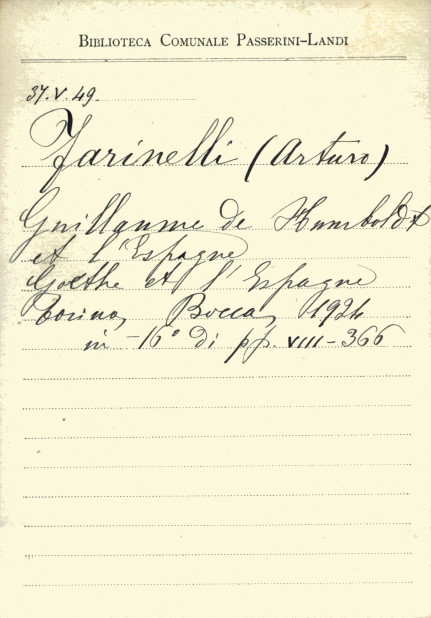 BIBLIOTECA COMUNALE PASSERINI-LANDI
37.V.49.
Farinelli (Arturo)
Guillaume de Humboldt
et l'Espagne
Goethe et l'Espagne
Torino, Bocca, 1924
in-16° di pp. VIII-366